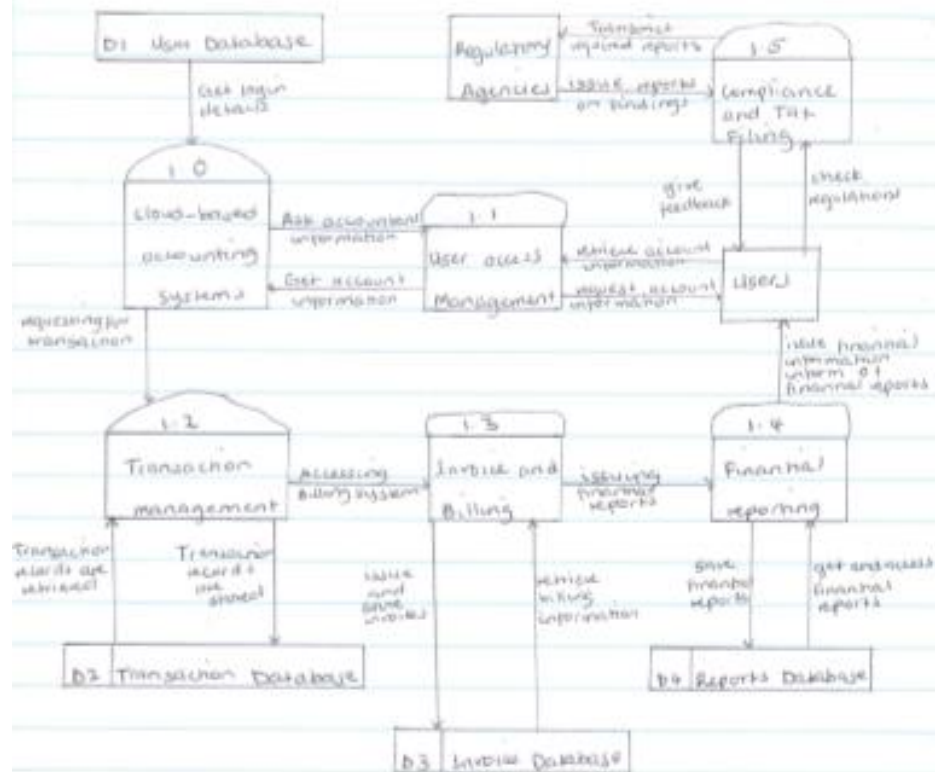 D1 User Database
Get login
details
1.0
Cloud-based
accounting
systems
Regulatory
Agencies
Transmit
required reports
issue reports
on findings
1.5
Compliance
and Tax
Filing
give
feedback
check
regulations
Ask accountant
information
Get account
information
1.1
User access
Management
retrieve account
information
request account
information
Users
requesting for
transaction
issue financial
information
inform of
financial reports
1.2
Transaction
management
Accessing
Billing system
1.3
Invoice and
Billing
issuing
financial
reports
1.4
Financial
reporting
Transaction
records are
retrieved
Transaction
records
are
stored
issue
and
save
invoices
retrieve
billing
information
save
financial
reports
get and access
financial
reports
D2 Transaction Database
D4 Reports Database
D3 Invoice Database